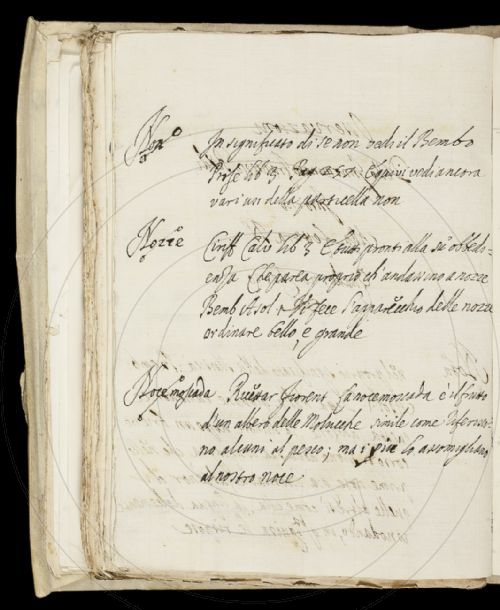 Non In significato di se non vedi il Bembo
Prose lib 3 Pag 257 E quivi vedi ancora
vari usi della particella non
Nozze Ciriff Calv lib 3 E tutti pronti alla su' obbedi=
enza Che parea proprio ch' andassino a nozze
Bemb Asol 1 fece l'apparecchio delle nozze
ordinare bello, e grande
Noce moscada Ricettar fiorent La noce moscada è il frutto
d'un albero delle Molucche simile come riferisco=
no alcuni al pesco; ma i più lo assomigliano
al nostro noce